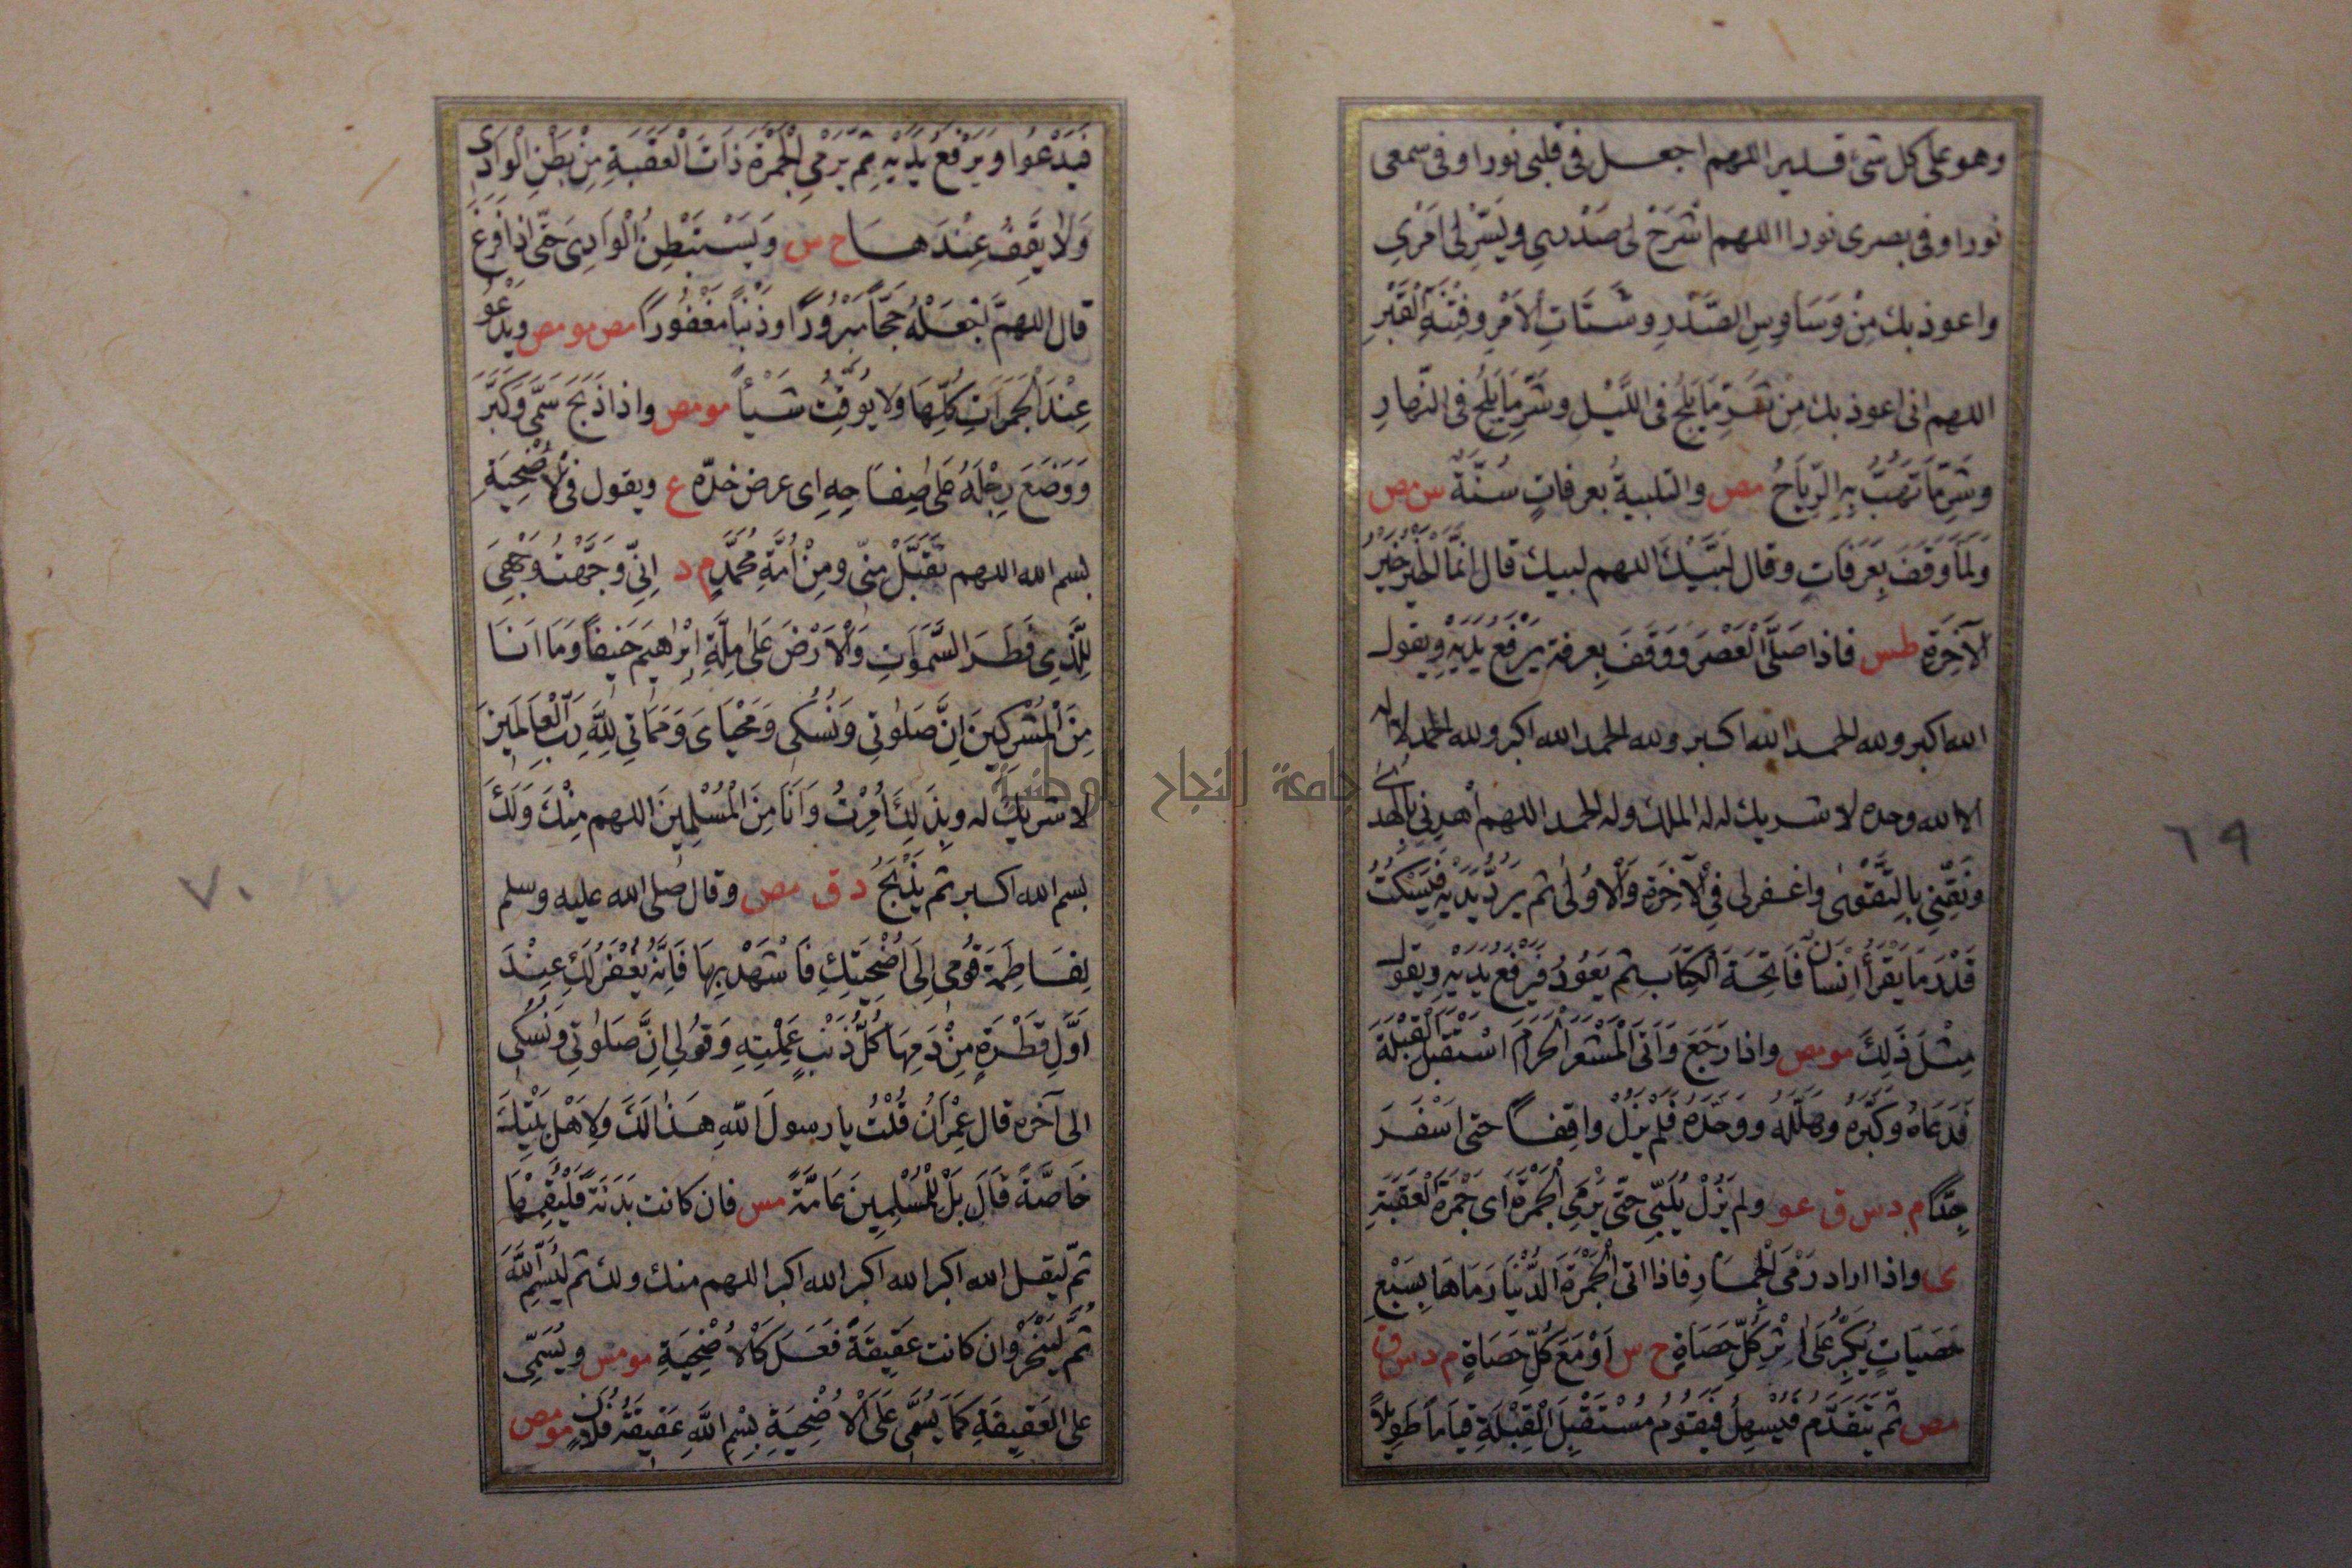 وهو على كل شئ قدير اللهم اجعل فى قلبى نورا وفى سمعى
نورا وفى بصرى نورا اللهم اشْرَحْ لى صَدْرِي ويَسِّرْلى اَمْرِي
واعوذ بك مِنْ وَسَاوِسِ الصَّدْرِ وشَتَاتِ الْاَمْرِ وفِتْنَةِ الْقَبْرِ
اللهم انى اعوذ بك مِنْ شَرِّ مَا يَلِجُ فى اللَّيْلِ وشَرِّ مَا يَلِجُ فى النَّهارِ
وشَرِّ مَا تَهُبُّ بِهِ الرِّيَاحُ مص والتلبيةُ بعرفاتٍ سُنَّةٌ س مص
وَلَمَّا وَقَفَ بِعَرَفَاتٍ وقال لبَّيْكَ اللهم لبيك قال انَّمَا الْخَيْرُ خَيْرُ
الْآخِرَةِ طس فاذا صَلَّى الْعَصْرَ وَوَقَفَ بِعرفة يَرْفَعُ يَدَيْهِ ويقول
الله اكبر ولله الحمد الله اكبر ولله الحمد الله اكبر ولله الحمد لا اله
الا الله وحده لا شريك له له الملك وله الحمد اللهم اهْدِنِي بِالْهُدَى
ونَقِّنِي بِالتَّقْوٰى واغفرلى فِي الْآخِرَةِ وَالْاُولٰى ثم يَرُدُّ يَدَيْهِ فَيَسْكُتُ
قَدْرَ مَا يَقْرَأُ اِنْسَانٌ فَاتِحَةَ الْكِتَابِ ثم يَعُودُ فَيَرْفَعُ يَدَيْهِ ويقول
مِثْلَ ذَلِكَ مو مص واذا رَجَعَ وَاَتَى الْمَشْعَرَ الْحَرَامَ اسْتَقْبَلَ الْقِبْلَةَ
فَدَعَاهُ وَكَبَّرَهُ وهَلَّلَهُ وَوَحَّدَهُ فَلَمْ يَزَلْ واقِفًا حتى اَسْفَرَ
جِدًّا م د س ق عو ولم يَزَلْ يُلَبِّي حتّى يَرْمِيَ الْجَمْرَةَ اَىْ جَمْرَةَ الْعَقَبَةِ
ى واذا اراد رَمْىَ الْجِمَارِ فاذا اتى الْجَمْرَةَ الدُّنْيَا رَمَاهَا بِسَبْعِ
حَصَيَاتٍ يُكَبِّرُ عَلَى اِثْرِ كُلِّ حَصَاةٍ خ س اَوْ مَعَ كُلِّ حَصَاةٍ م د س ق
مص ثم يَتَقَدَّمُ فَيُسْهِلُ فَيَقُومُ مُسْتَقْبِلَ الْقِبْلَةِ قِيَامًا طَوِيلاً
٦٩
فَيَدْعُوا ويَرْفَعُ يَدَيْهِ ثم يَرْمِي الْجَمْرَةَ ذَاتَ الْعَقَبَةِ مِنْ بَطْنِ الْوَادِى
وَلَا يَقِفُ عِنْدَهَا خ س ويَسْتَبْطِنُ الْوَادِىَ حَتّى اِذا فَرَغَ
قال اللهمَّ اجْعَلْهُ حَجًّا مَبْرُورًا وذَنْبًا مَغْفُورًا مص مو مص ويَدْعُو
عِنْدَ الْجَمَرَاتِ كُلِّهَا وَلا يُوَقِّتُ شَيْأً مو مص واذا ذَبَحَ سَمَّى وَكَبَّرَ
وَوَضَعَ رِجْلَهُ عَلى صِفَاحِهِ اى عرض خَدِّه ع ويقول فى الْاُضْحِيَةِ
بسم الله اللهم تَقَبَّلْ مِنِّى ومِنْ اُمَّةِ مُحَمَّدٍ م د اِنِّي وَجَّهْتُ وَجْهِيَ
لِلَّذِي فَطَرَ السَّمٰوَاتِ وَالْاَرْضَ عَلى مِلَّةِ اِبْرٰاهِيمَ حَنِيفًا وَمَا اَنَا
مِنَ الْمُشْرِكِينَ اِنَّ صَلٰوتِي وَنُسُكِى وَمَحْيَاىَ وَمَمَاتِي لِلَّهِ رَبِّ الْعَالَمِينَ
لا شريك له وبِذَلِكَ اُمِرْتُ وَاَنَا مِنَ الْمُسْلِمِينَ اللهم مِنْكَ وَلَكَ
بسم الله اكبر ثم يَذْبَحُ د ق مص وقال صلى الله عليه وسلم
لِفَاطِمَةَ قُومِى اِلَى اُضْحِيَتِكِ فَاشْهَدِيهَا فَاِنَّهُ يُغْفَرُ لَكِ عِنْدَ
اَوَّلِ قَطْرَةٍ مِنْ دَمِهَا كُلُّ ذَنْبٍ عَمِلْتِهِ وَقُولِي اِنَّ صَلٰوتِي وَنُسُكِى
الى آخره قال عِمْرَانُ قُلْتُ يا رسولَ اللهِ هَذَا لَكَ وَلِاَهْلِ بَيْتِكَ
خَاصَّةً قَالَ بَلْ لِلْمُسْلِمِينَ عَامَّةً مس فان كانت بَدَنَةً فَلْيُقِمْهَا
ثمّ ليقل الله اكبر الله اكبر الله اكبر اللهم منك ولك ثم لِيُسَمِّ اللهَ
ثُمَّ لْيَنْحَرْ وان كانت عَقِيقَةً فَعَلَ كَالْاُضْحِيَةِ مو مس ويُسَمِّى
على العَقِيقَةِ كَمَا يُسَمَّى عَلَى الْاُضْحِيَةِ بِسْمِ اللهِ عَقِيقَةُ فُلَانٍ مو مص
٧٠
جامعة النجاح الوطنية